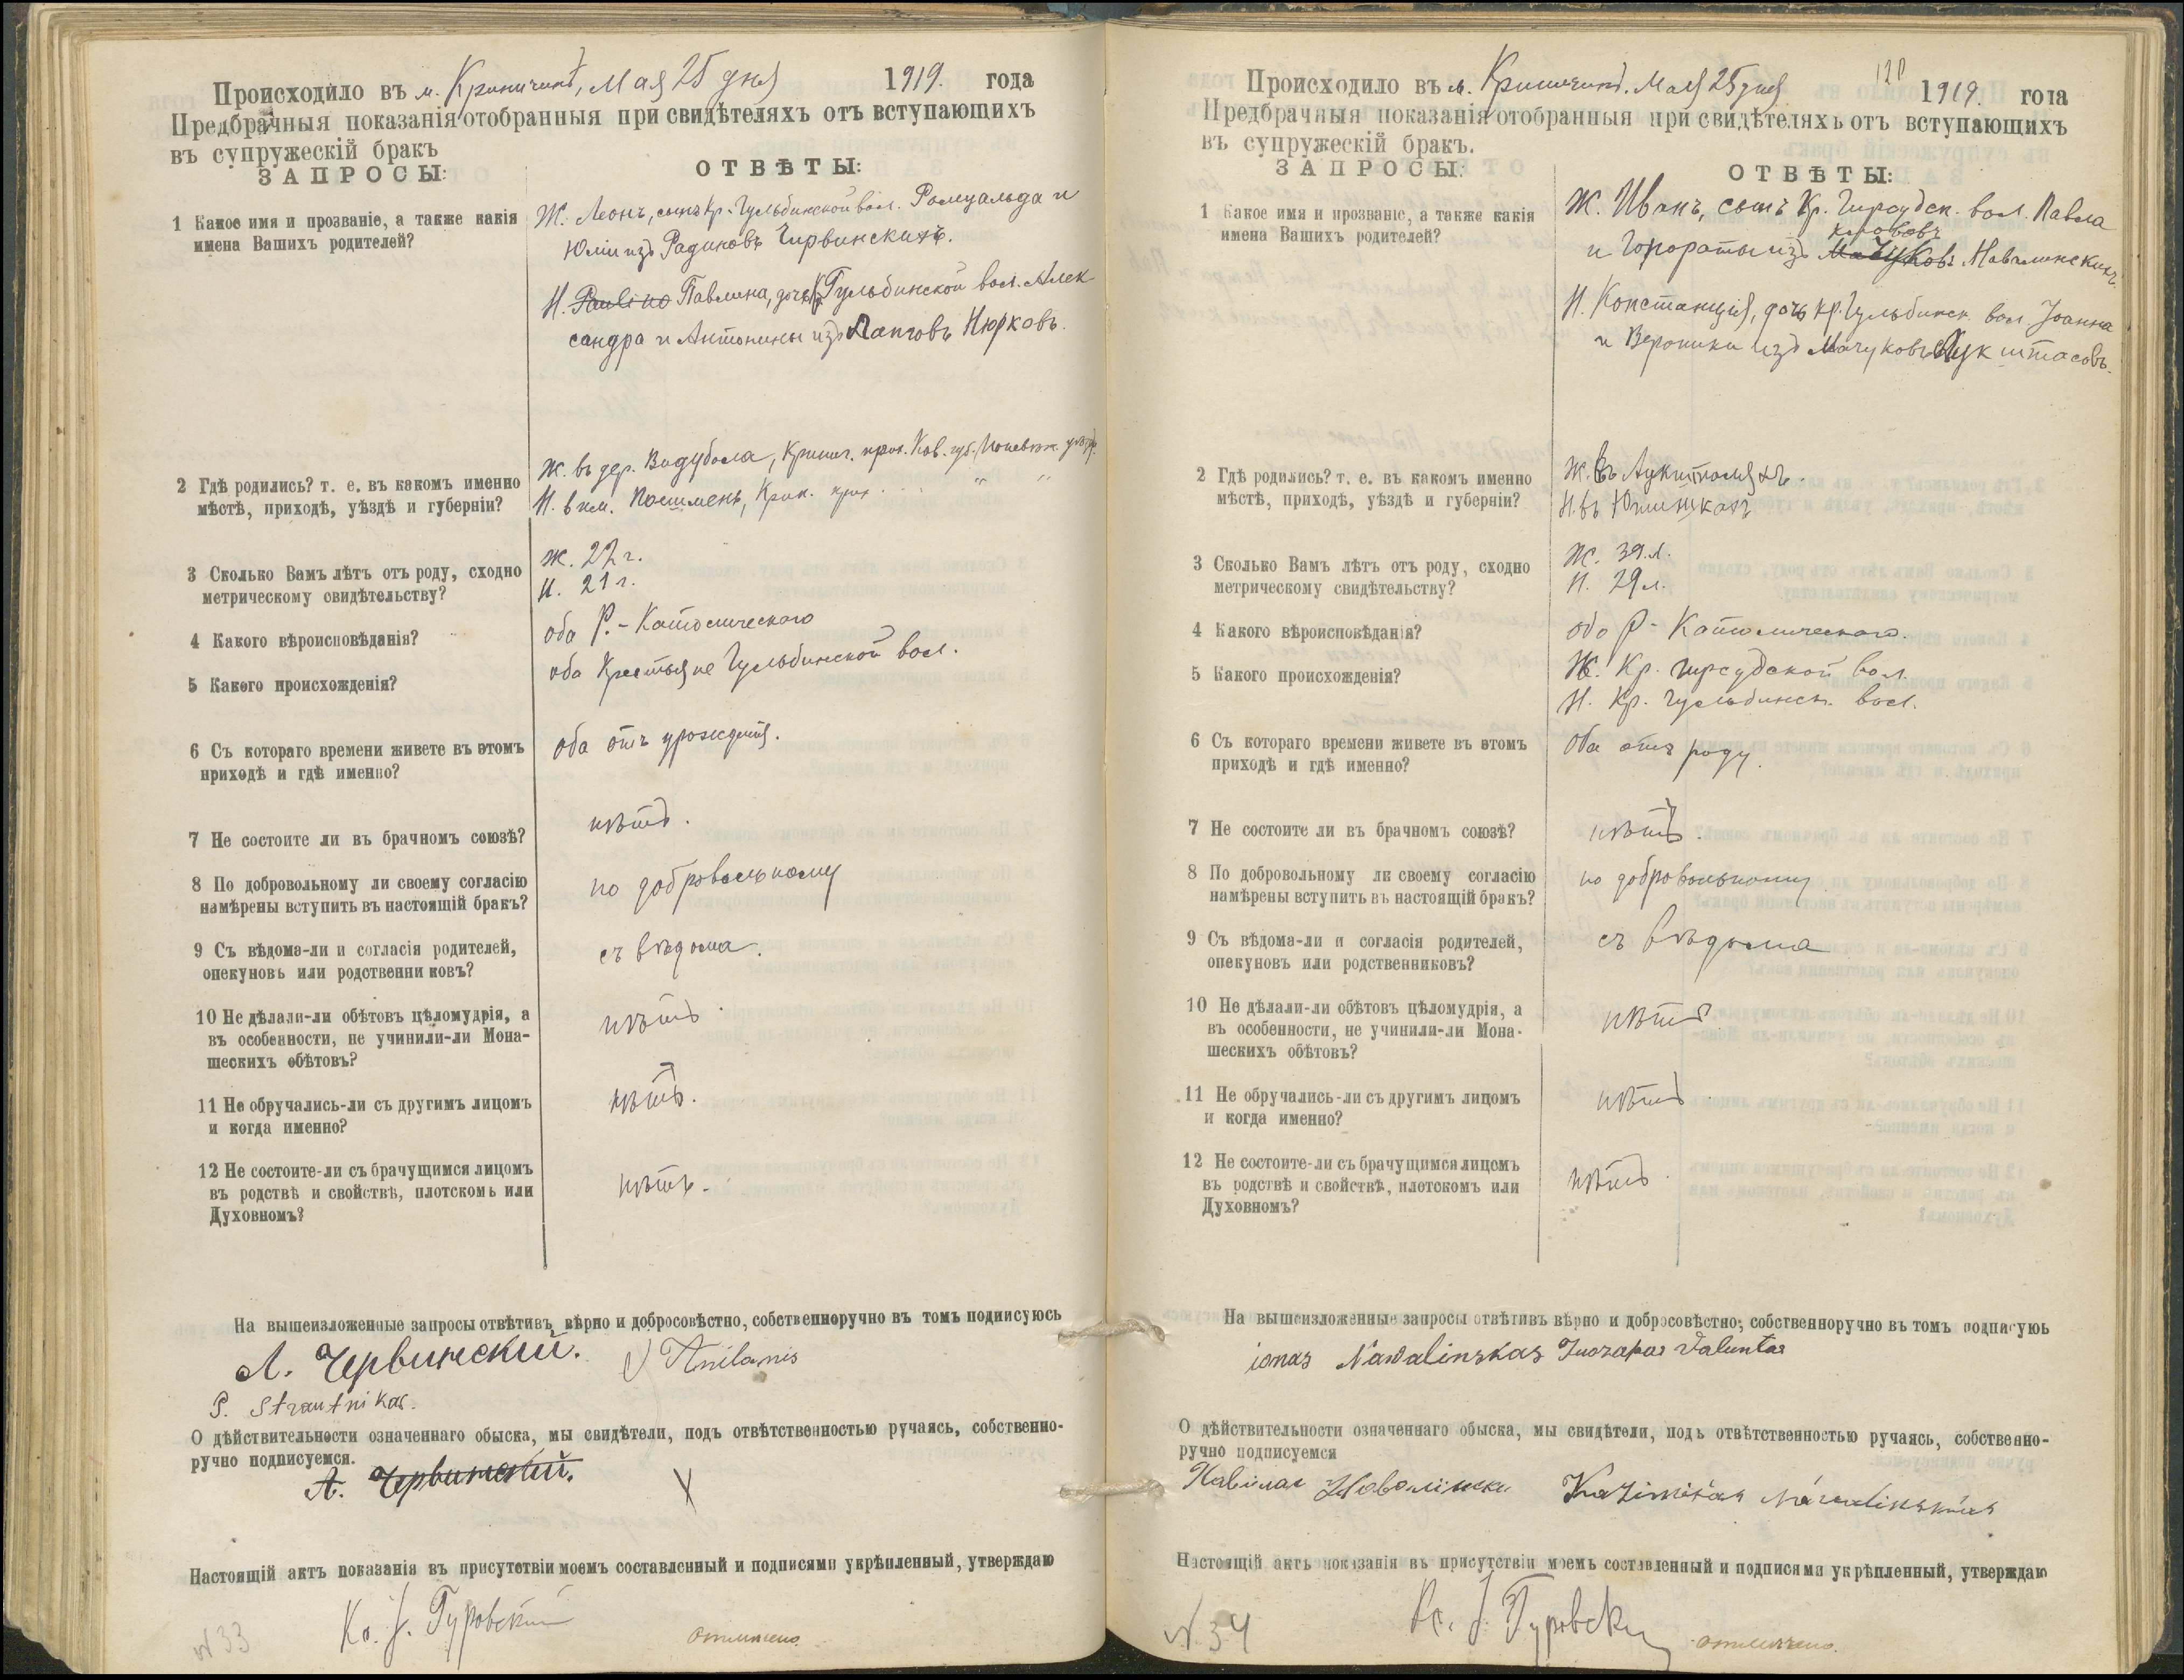 Происходило въ м. Криничинѣ, Мая 25 дня 1919. года
Предбрачныя показанія отобранныя при свидѣтеляхъ отъ вступающихъ
въ супружескій бракъ
ЗАПРОСЫ:
ОТВѢТЫ:
1 Какое имя и прозваніе, а также какія
имена Вашихъ родителей?
Ж. Леонъ, сынъ Кр. Гульбинской вол. Ромуальда и
Юліи изъ Радиковъ Чирвинскихъ.
Н. Paulino Павлина, дочь Кр. Гульбинской вол. Алек
сандра и Антонины изъ Лапговъ Нюрковъ.
2 Гдѣ родились? т. е. въ какомъ именно
мѣстѣ, приходѣ, уѣздѣ и губерніи?
Ж. въ дер. Видубола, Кринич. прих. Ков. губ. Поневѣж. уѣзд.
Н. в им. Поишмень, Крин. прих. " "
3 Сколько Вамъ лѣтъ отъ роду, сходно
метрическому свидѣтельству?
Ж. 22 г.
Н. 21 г.
4 Какого вѣроисповѣданія?
оба Р.-Католическаго
5 Какого происхожденія?
оба Крестьяне Гульбинской вол.
6 Съ котораго времени живете въ этомъ
приходѣ и гдѣ именно?
оба отъ урождения.
7 Не состоите ли въ брачномъ союзѣ?
нѣтъ.
8 По добровольному ли своему согласію
намѣрены вступить въ настоящій бракъ?
по добровольному
9 Съ вѣдома-ли и согласія родителей,
опекуновъ или родственни ковъ?
съ вѣдома.
10 Не дѣлали-ли обѣтовъ цѣломудрія, а
въ особенности, не учинили-ли Мона-
шескихъ обѣтовъ?
нѣтъ.
11 Не обручались-ли съ другимъ лицомъ
и когда именно?
нѣтъ.
12 Не состоите-ли съ брачущимся лицомъ
въ родствѣ и свойствѣ, плотскомъ или
Духовномъ?
нѣтъ.
На вышеизложенные запросы отвѣтивъ вѣрно и добросовѣстно, собственноручно въ томъ подписуюсь
Л. Червинскій.
P. Strautnikas.
О дѣйствительности означеннаго обыска, мы свидѣтели, подъ отвѣтственностью ручаясь, собственно-
ручно подписуемся.
Л. Червинский.
Настоящій актъ показанія въ присутствіи моемъ составленный и подписями укрѣпленный, утверждаю
Кс. J. Гуровский
№ 33
отмѣчено.
120
Происходило въ м. Криничинѣ. Мая 25 дня 1919. года
Предбрачныя показанія отобранныя при свидѣтеляхъ отъ вступающихъ
въ супружескій бракъ.
ЗАПРОСЫ:
ОТВѢТЫ:
1 Какое имя и прозваніе, а также какія
имена Вашихъ родителей?
Ж. Иванъ, сынъ Кр. Гирсудск. вол. Павла
и Гонораты изъ Мачуковъ Навалинскихъ.
Н. Констанція, дочь кр. Гульбинск. вол. Іоанна
и Вероники изъ Мачуковъ Аукштасовъ.
2 Гдѣ родились? т. е. въ какомъ именно
мѣстѣ, приходѣ, уѣздѣ и губерніи?
3 Сколько Вамъ лѣтъ отъ роду, сходно
метрическому свидѣтельству?
Ж. 39. л.
Н. 29 л.
4 Какого вѣроисповѣданія?
оба Р- Католическаго.
5 Какого происхожденія?
Ж. Кр. Гирсудской вол.
Н. Кр. Гульбинск. вол.
6 Съ котораго времени живете въ этомъ
приходѣ и гдѣ именно?
Оба отъ роду.
7 Не состоите ли въ брачномъ союзѣ?
нѣтъ.
8 По добровольному ли своему согласію
намѣрены вступить въ настоящій бракъ?
по добровольному
9 Съ вѣдома-ли и согласія родителей,
опекуновъ или родственниковъ?
съ вѣдома
10 Не дѣлали-ли обѣтовъ цѣломудрія, а
въ особенности, не учинили-ли Мона-
шескихъ обѣтовъ?
нѣтъ
11 Не обручались-ли съ другимъ лицомъ
и когда именно?
нѣтъ
12 Не состоите-ли съ брачущимся лицомъ
въ родствѣ и свойствѣ, плотскомъ или
Духовномъ?
нѣтъ.
На вышеизложенные запросы отвѣтивъ вѣрно и добросовѣстно, собственноручно въ томъ подписуюь
ionas Nawalinskas Juozapas Valuntas
О дѣйствительности означеннаго обыска, мы свидѣтели, подъ отвѣтственностью ручаясь, собственно-
ручно подписуемся
Kazimieras Nawalinskas
Настоящій актъ показанія въ присутствіи моемъ составленный и подписями укрѣпленный, утверждаю
Кс. J. Гуровски
№ 34
отмѣчено.